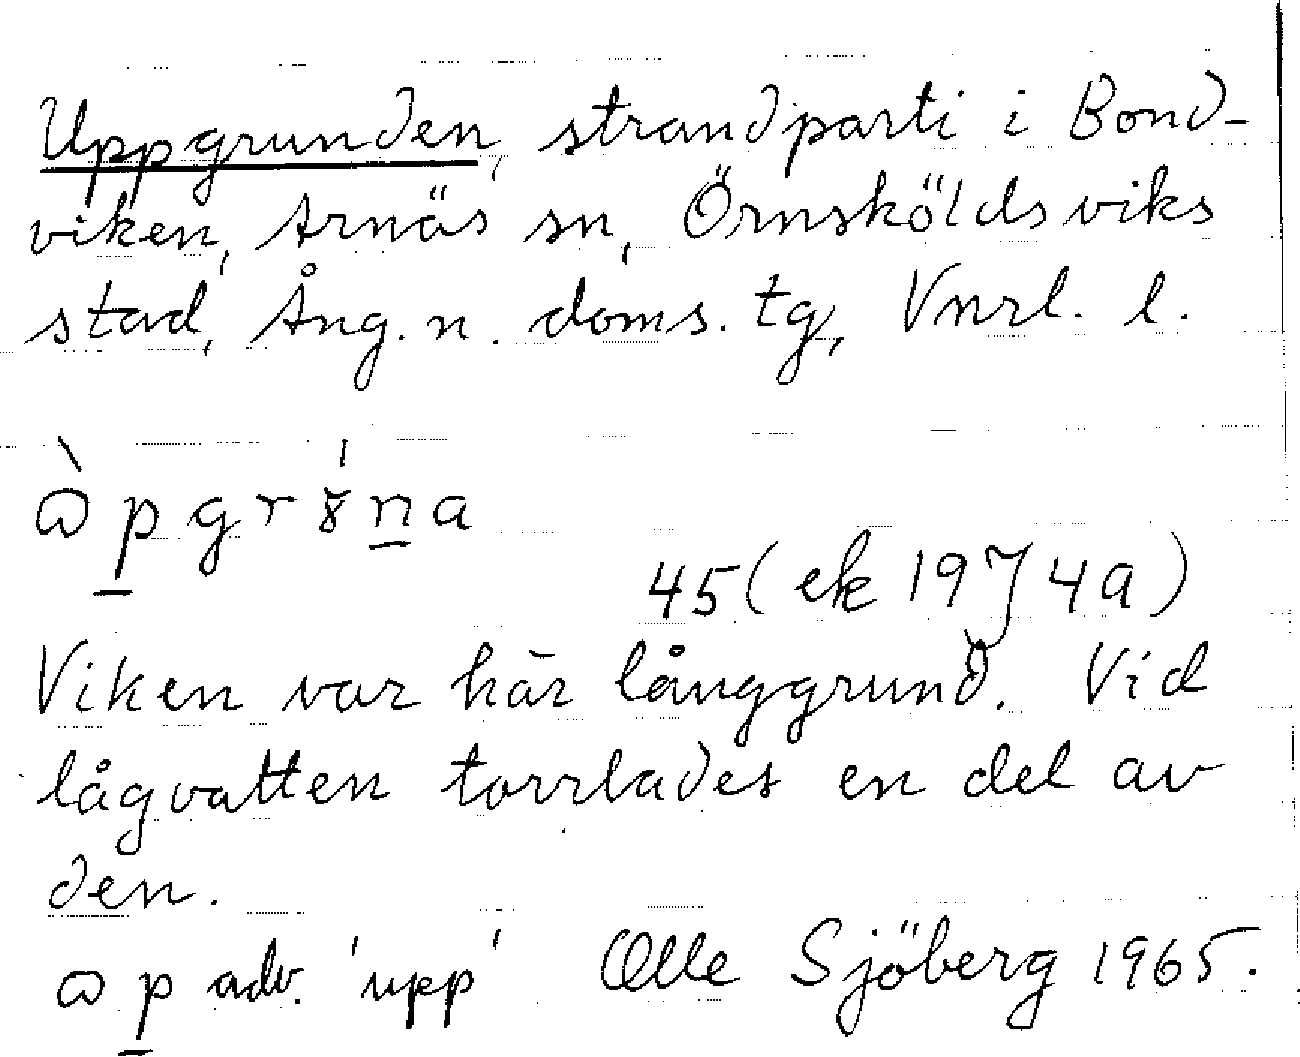 Uppgrunden, strandparti i Bond-
viken, Arnäs sn, Örnsköldsviks
stad, Ång. n. doms. tg, Vnrl. l.
ɷ̀p̲grɤ́n̲a
45 (ek 19J4a)
Viken var här långgrund. Vid
lågvatten torrlades en del av
den.
ɷp̲ adv. 'upp' Olle Sjöberg 1965.